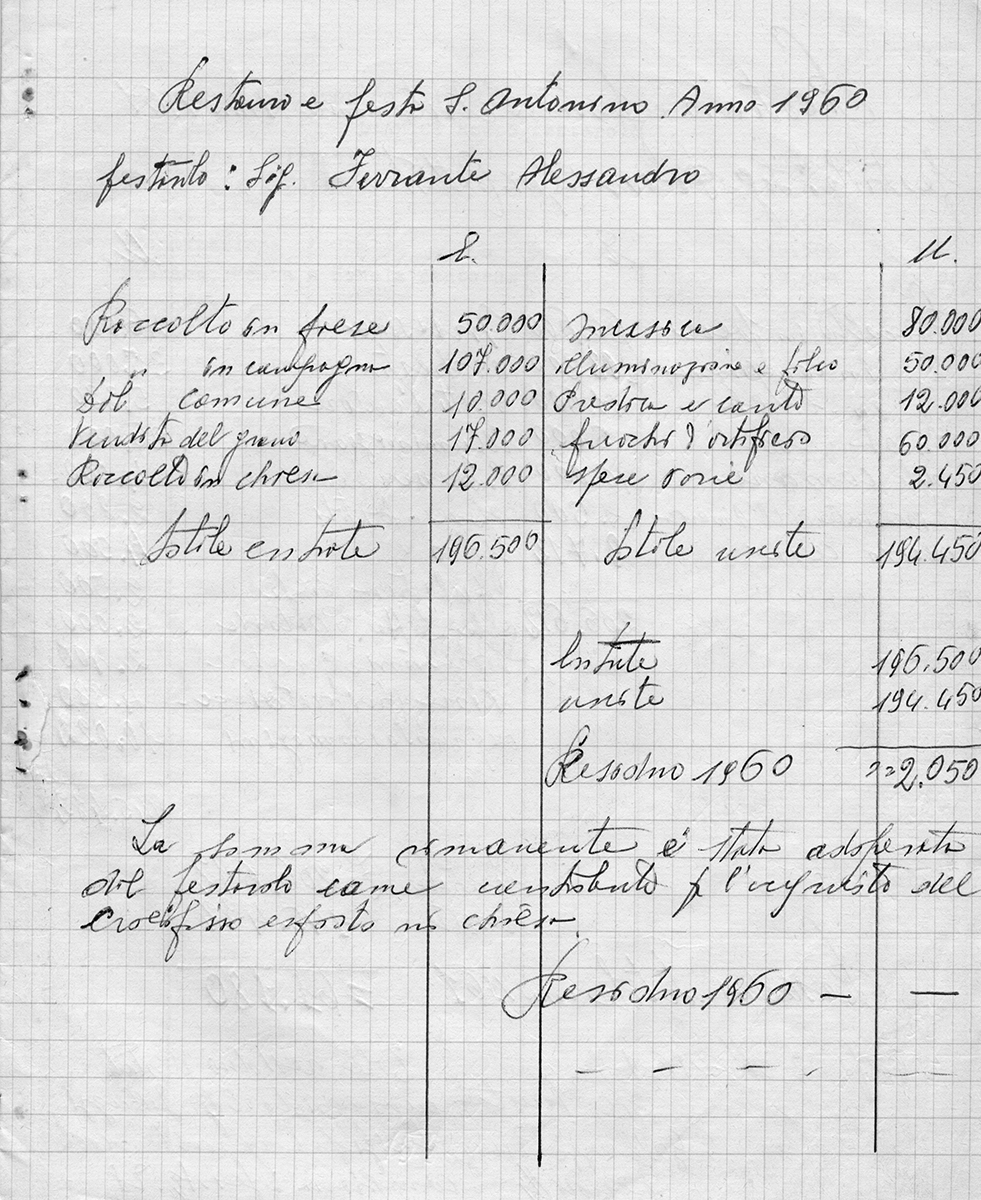 Restauro e festa S. Antonino Anno 1960
festarolo : Sig. Ferrante Alessandro
E. U.
Raccolto in 50.000 musica 80.000
" in campagna 107.000 illuminazione e 50.000
Dal comune 10.000 Predica e canto 12.000
Vendita del grano 17.000 fuochi d'artifizio 60.000
Raccolto in chiesa 12.000 spese varie 2.450
totale entrate 196.500 totale uscite 194.450
Entrate 196.500
uscite 194.450
Residuo 1960 ==2.050
La somma rimanente è stata adoperata
dal festarolo come contributo p l'acquisto del
crocifisso esposto in chiesa.
Residuo 1960 — —
— — — . — —